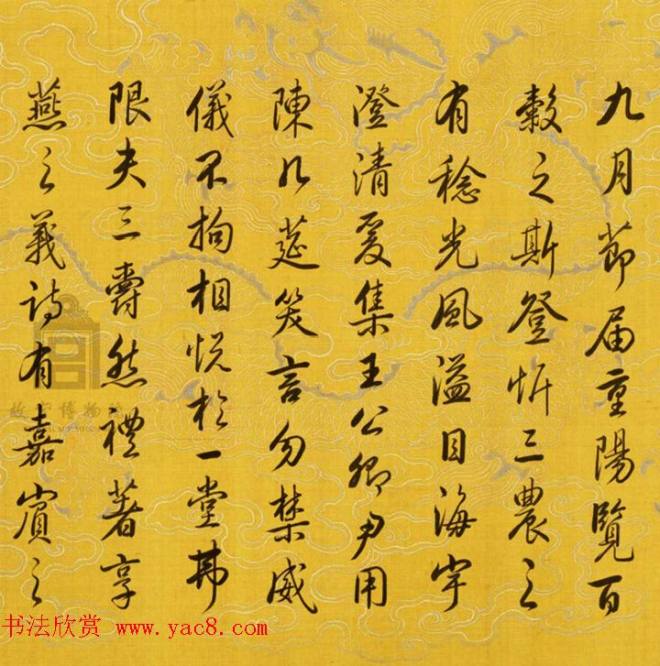 九月節届重陽覽百
穀之斯登忻三農之
有稔光風溢目海宇
澄清爰集王公卿尹用
陳几莚笑言勿禁威
儀不拘相悦於一堂弗
限夫三爵然禮著享
燕之義詩有嘉賓之
故宫博物院
书法欣赏 www.yac8.com